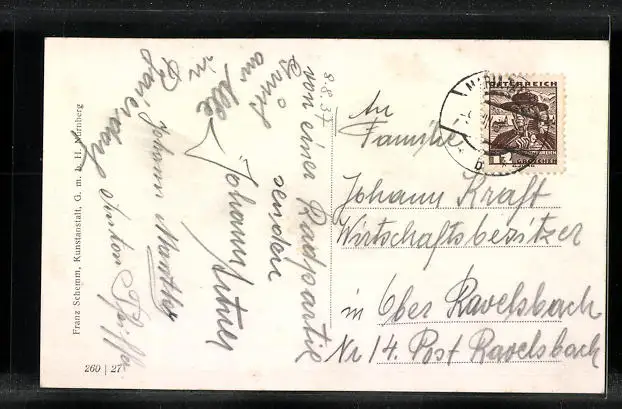 8.8.37
von einer Radpartie
senden
Grüße
an Alle
in
Johann
Johann
Anton
An
Familie
Johann Kraft
Wirtschaftsbesitzer
in Ober Ravelsbach
Nr 14. Post Ravelsbach
ÖSTERREICH
Franz Schemm, Kunstanstalt, G. m. b. H. Nürnberg
260 | 27